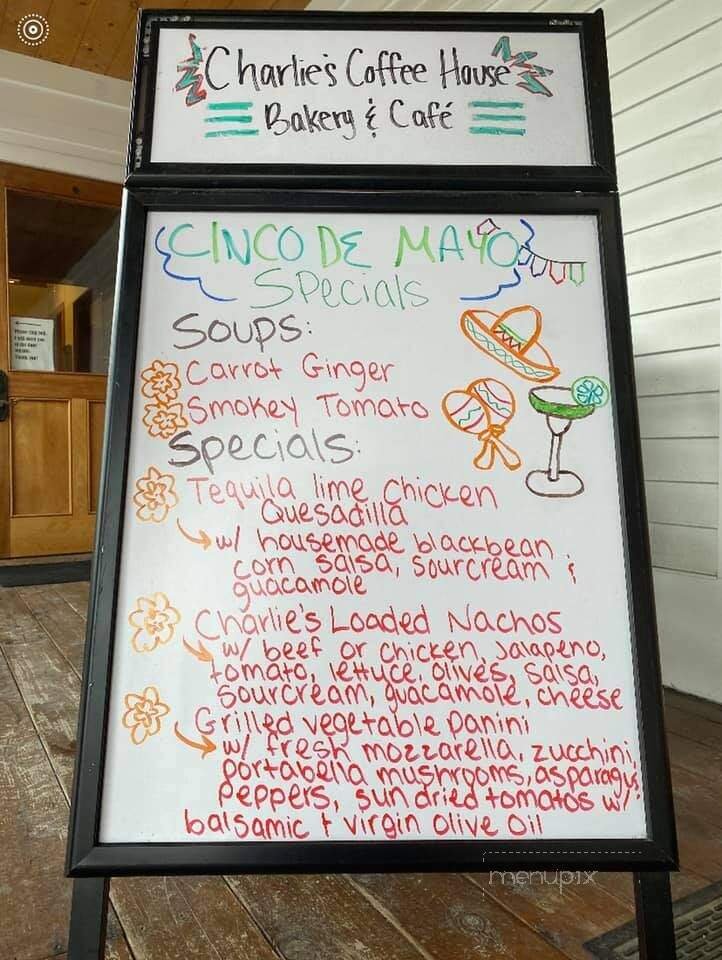 Charlie's Coffee House
Bakery & Café
CINCO DE MAYO
Specials
Soups:
Carrot Ginger
Smokey Tomato
Specials:
Tequila lime Chicken
Quesadilla
w/ housemade blackbean
corn salsa, sourcream &
guacamole
Charlie's Loaded Nachos
w/ beef or chicken, Jalapeno,
tomato, lettuce, olives, salsa,
sourcream, guacamole, cheese
Grilled vegetable panini
w/ fresh mozzarella, zucchini,
portabella mushrooms, asparagus,
peppers, sun dried tomatos w/
balsamic + virgin olive oil
menupix